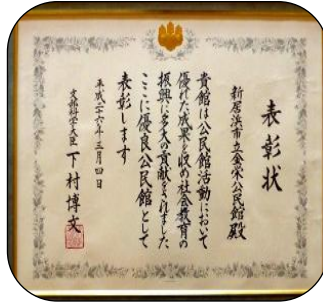 表彰状
新居浜市立金栄公民館殿
貴館は公民館活動において
優れた成果を収め社会教育の
振興に多大の貢献をされました
ここに優良公民館として
表彰します
平成二十六年三月四日
文部科学大臣 下村博文